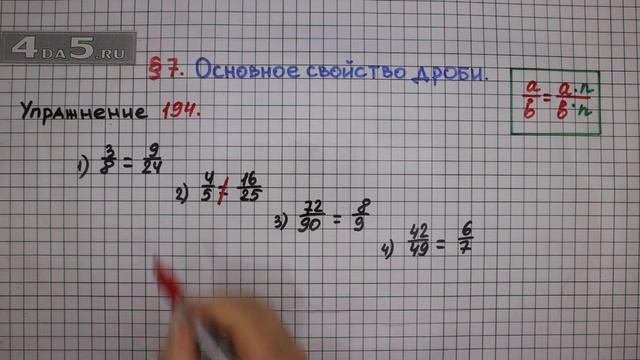 4DA5.RU
§7. Основное свойство дроби.
a/b = a·n/b·n
Упражнение 194.
1) 3/8 = 9/24
2) 4/5 ≠ 16/25
3) 72/90 = 8/9
4) 42/49 = 6/7